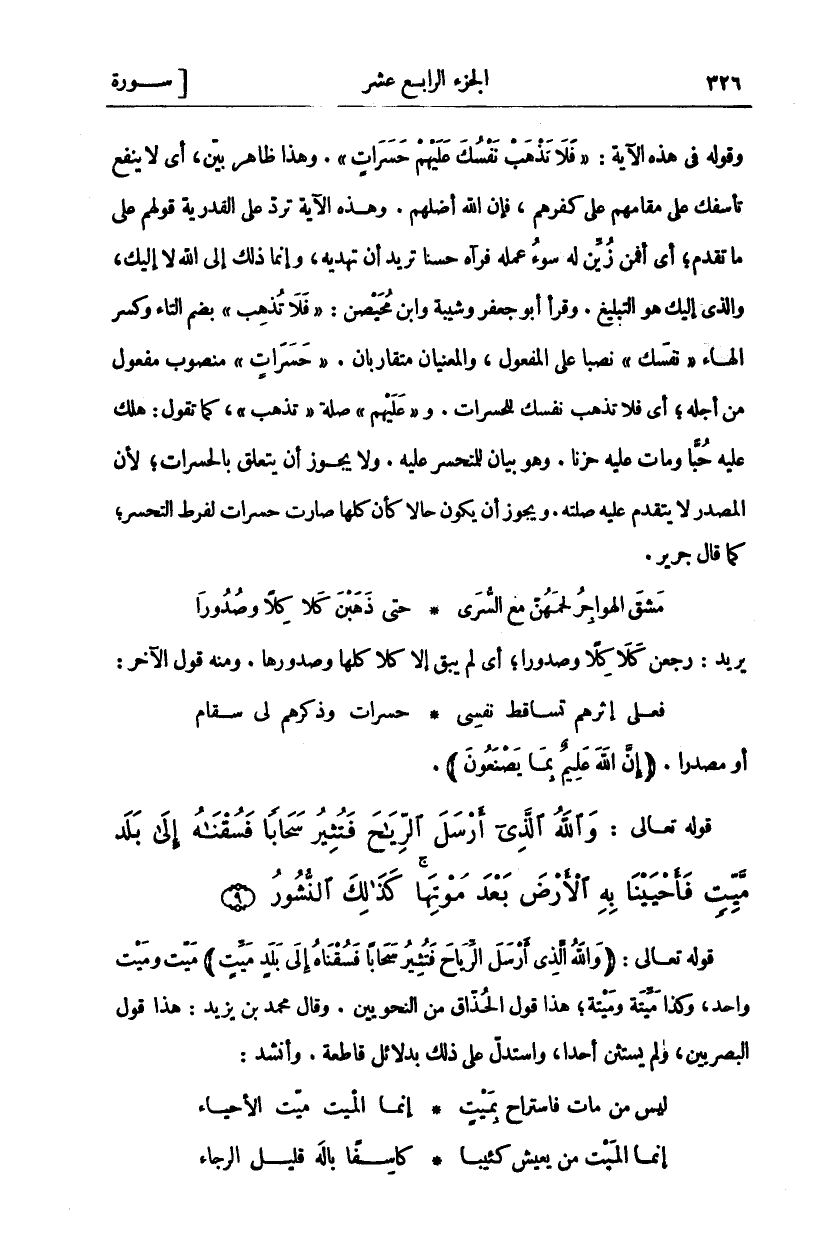 ٣٢٦ الجزء الرابع عشر [ ســورة
وقوله فى هذه الآية : « فَلَا تَذْهَبْ نَفْسُكَ عَلَيْهِمْ حَسَرَاتٍ » . وهذا ظاهر بيّن، أى لا ينفع
تأسفك على مقامهم على كفرهم ، فإن الله أضلهم . وهـذه الآية تردّ على القدرية قولهم على
ما تقدم؛ أى أفمن زُيِّن له سوءُ عمله فرآه حسنا تريد أن تهديه، وإنما ذلك إلى الله لا إليك،
والذى إليك هو التبليغ . وقرأ أبو جعفر وشيبة وابن مُحَيْصن : « فَلَا تُذهِب » بضم التاء وكسر
الهـاء « نفسَك » نصبا على المفعول ، والمعنيان متقاربان . « حَسَرَاتٍ » منصوب مفعول
من أجله ؛ أى فلا تذهب نفسك للحسرات . و « عَلَيْهِم » صلة « تذهب »، كما تقول: هلك
عليه حُبًّا ومات عليه حزنا . وهو بيان للتحسر عليه . ولا يجـوز أن يتعلق بالحسرات؛ لأن
المصدر لا يتقدم عليه صلته . ويجوز أن يكون حالا كأن كلها صارت حسرات لفرط التحسر؛
كما قال جرير .
مَشَقَ الهواجِرُ لحمَهُنّ مع السُّرَى * حتى ذَهَبْنَ كَلاَ كِلاً وصُدُورَا
يريد : رجعن كَلَا كِلًا وصدورا؛ أى لم يبق إلا كلا كلها وصدورها . ومنه قول الآخر :
فعـلى إثرهم تسـاقط نفسِى * حسرات وذكرهم لى سـقام
أو مصدرا . ﴿ إِنَّ اللَّهَ عَلِيمٌ بِمَـا يَصْنَعُونَ ﴾ .
قوله تعـالى : وَٱللَّهُ ٱلَّذِىٓ أَرْسَلَ ٱلرِّيَٰحَ فَتُثِيرُ سَحَابًا فَسُقْنَٰهُ إِلَىٰ بَلَدٍ
مَّيِّتٍ فَأَحْيَيْنَا بِهِ ٱلْأَرْضَ بَعْدَ مَوْتِهَا ۚ كَذَٰلِكَ ٱلنُّشُورُ ۝٩
قوله تعـالى : ﴿ وَاللَّهُ الَّذِى أَرْسَلَ الرِّيَاحَ فَتُثِيرُ سَحَابًا فَسُقْنَاهُ إِلَى بَلَدٍ مَيِّتٍ ﴾ مَيّت ومَيْت
واحد، وكذا مَيِّتة ومَيْتة؛ هذا قول الحُذّاق من النحويين . وقال محمد بن يزيد : هذا قول
البصريين، ولم يستثن أحدا، واستدلّ على ذلك بدلائل قاطعة . وأنشد :
ليس من مات فاستراح بِمَيْتٍ * إنمـا الْميت ميّت الأحيـاء
إنمـا المَيْت من يعيش كئيبـا * كاسِــفًا بالَه قليــل الرجاء